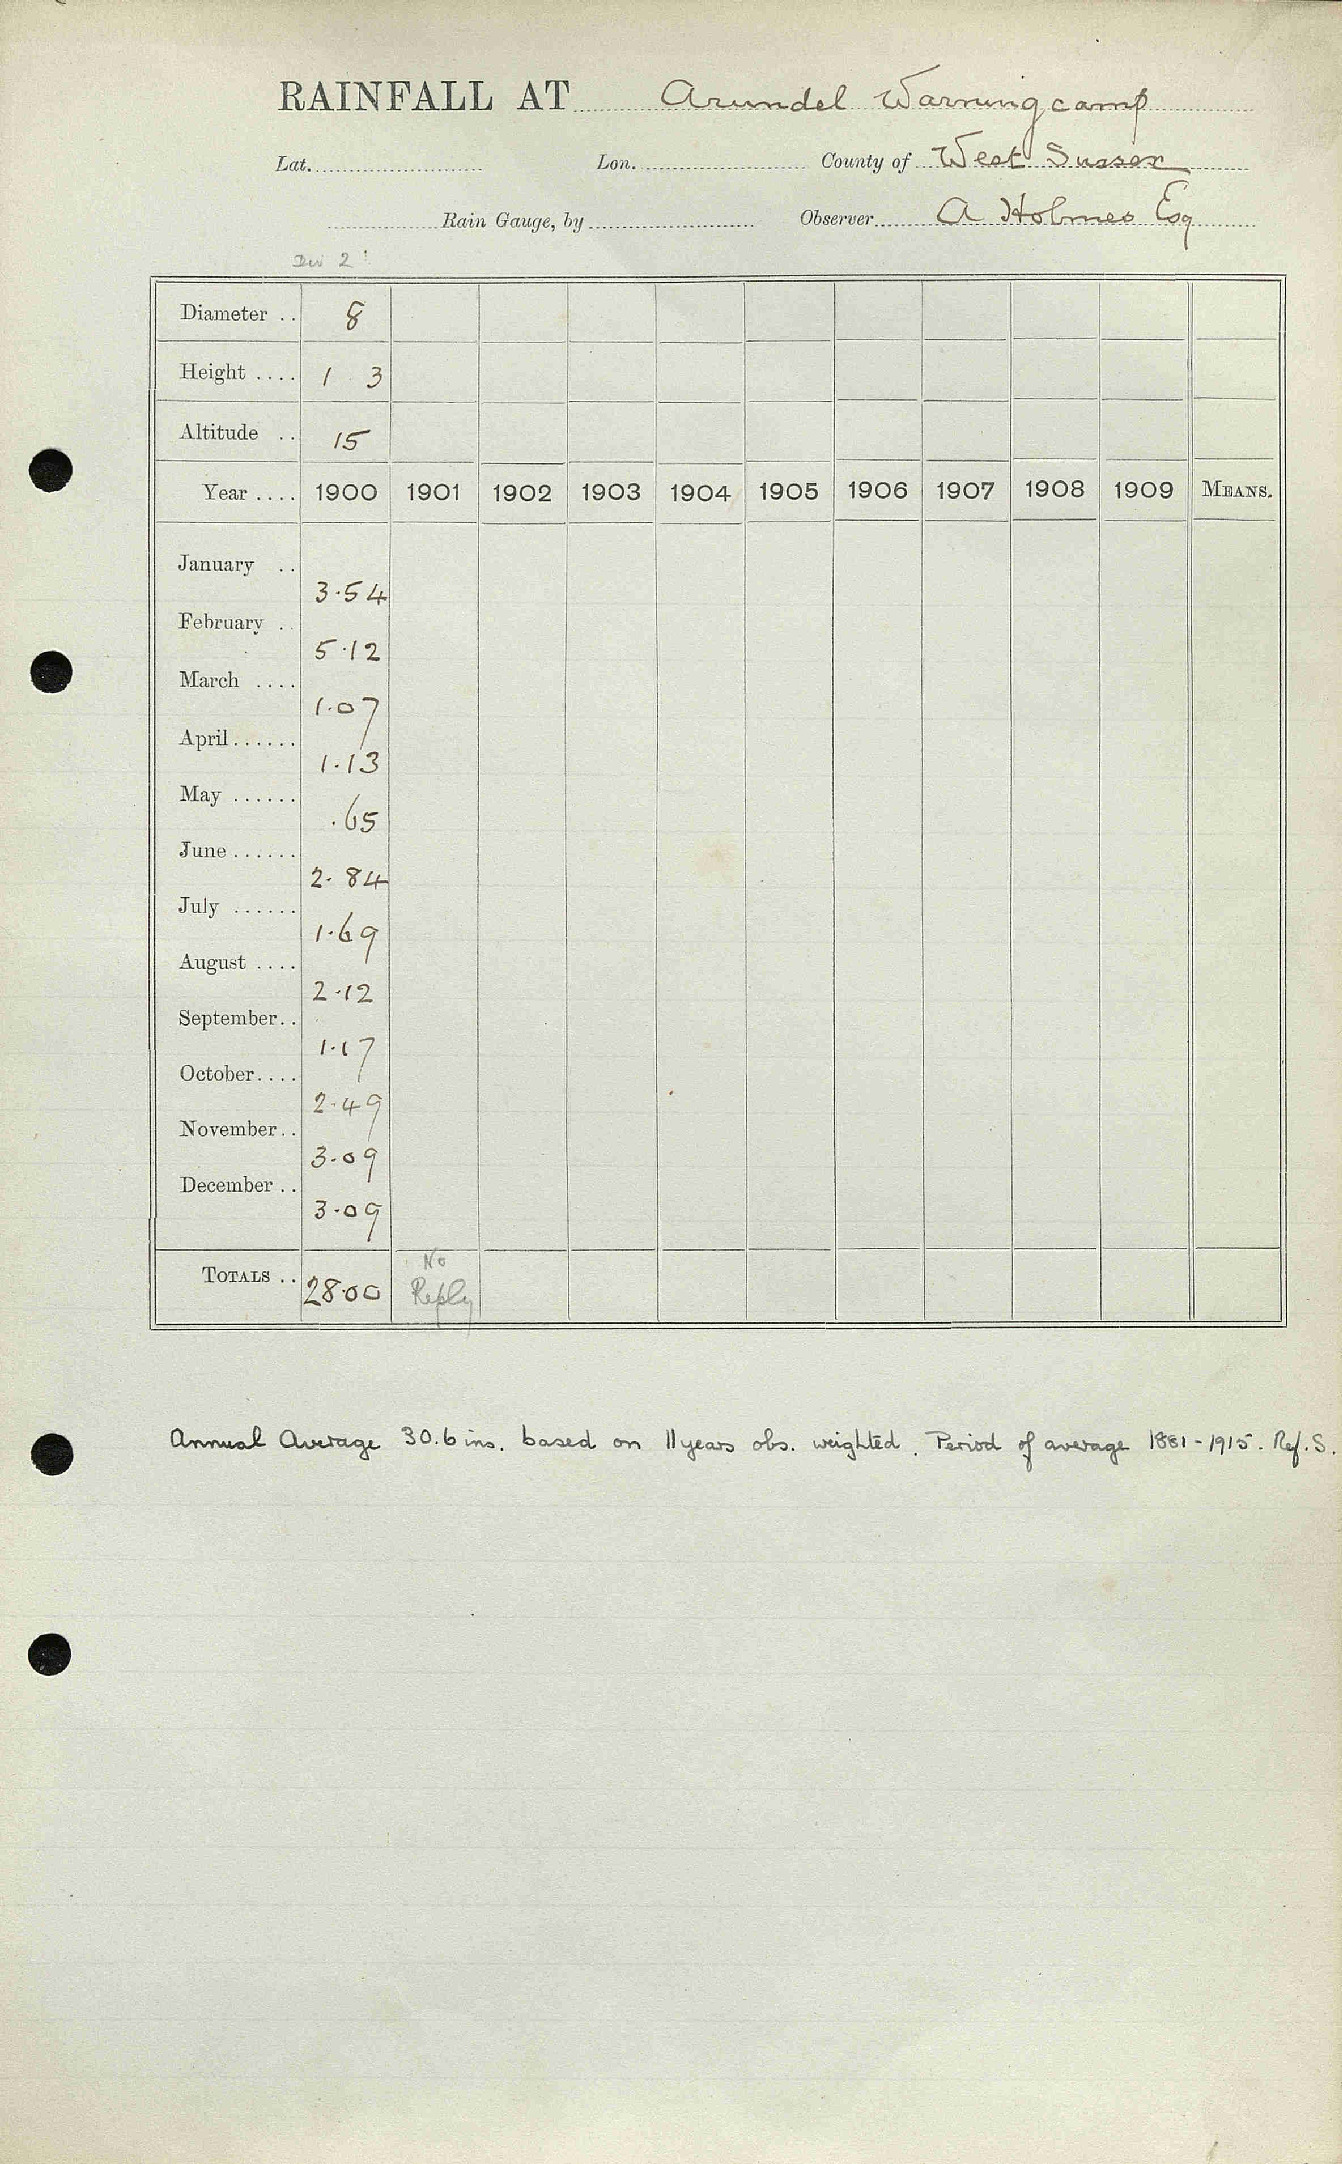 RAINFALL AT Arundel Warningcamp
Lat. Lon. County of West Sussex
Rain Gauge, by Observer A Holmes Esq
2
Diameter .. 8
Height .... 1 3
Altitude .. 15
Year .... 1900 1901 1902 1903 1904 1905 1906 1907 1908 1909 MEANS.
January .. 3.54
February .. 5.12
March .... 1.07
April ...... 1.13
May ...... .65
June ...... 2.84
July ...... 1.69
August .... 2.12
September .. 1.17
October .... 2.49
November .. 3.09
December .. 3.09
TOTALS .. 28.00 No Reply
Annual Average 30.6 ins. based on 11 years obs. weighted. Period of average 1881-1915. Ref. S.